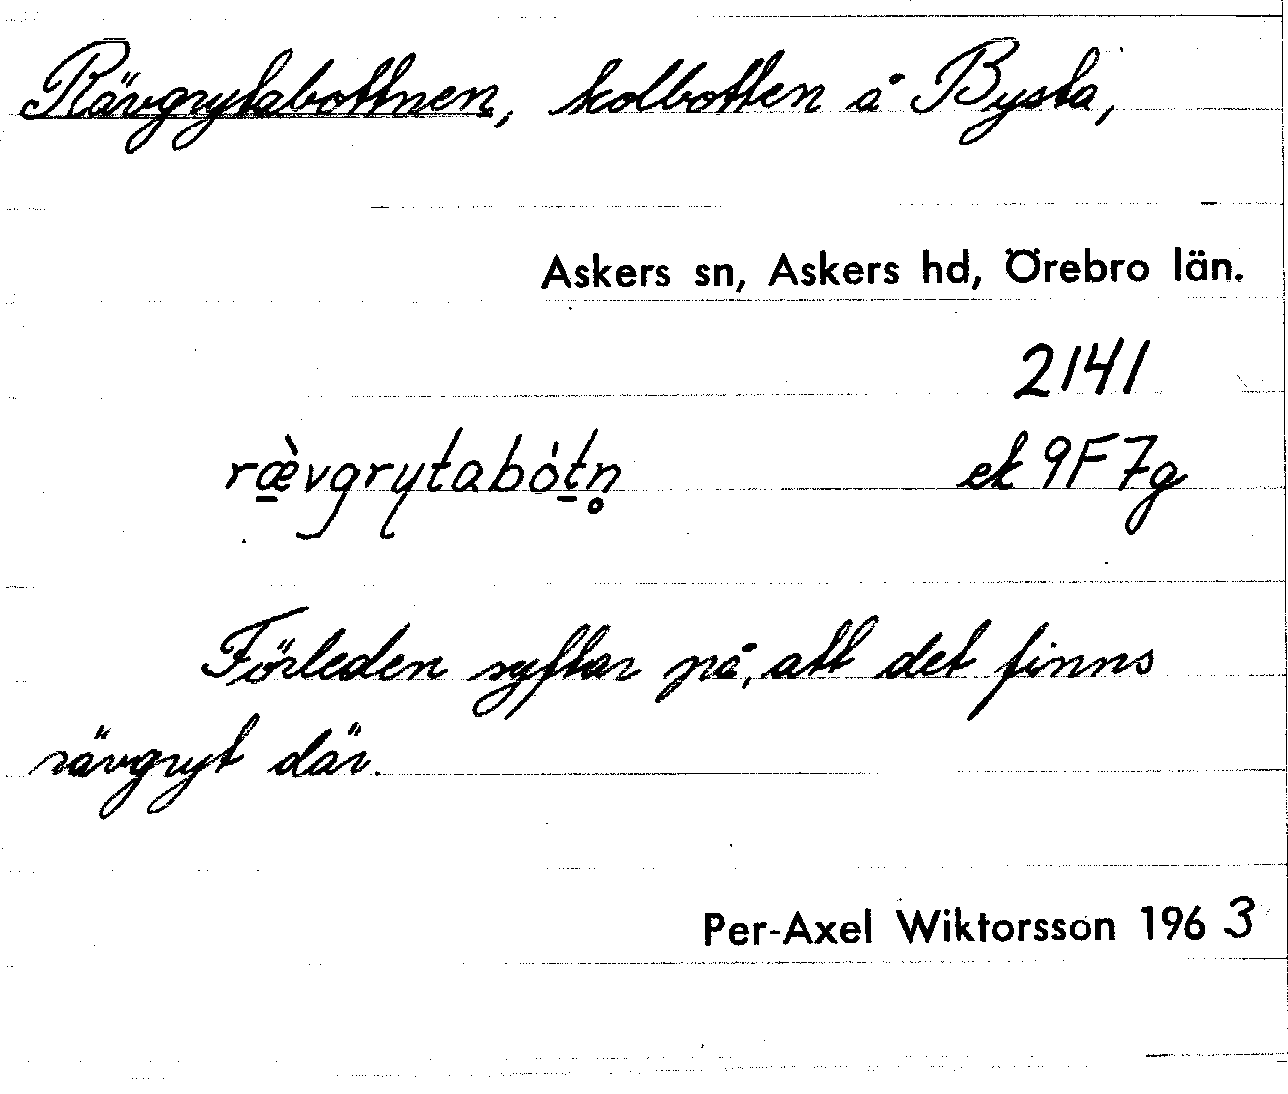 Rävgrytabottnen, kolbotten å Bysta,
Askers sn, Askers hd, Örebro län.
2141
ræ̀vgrytabótn̥ ek 9F7g
Förleden syftar på, att det finns
rävgryt där.
Per-Axel Wiktorsson 1963